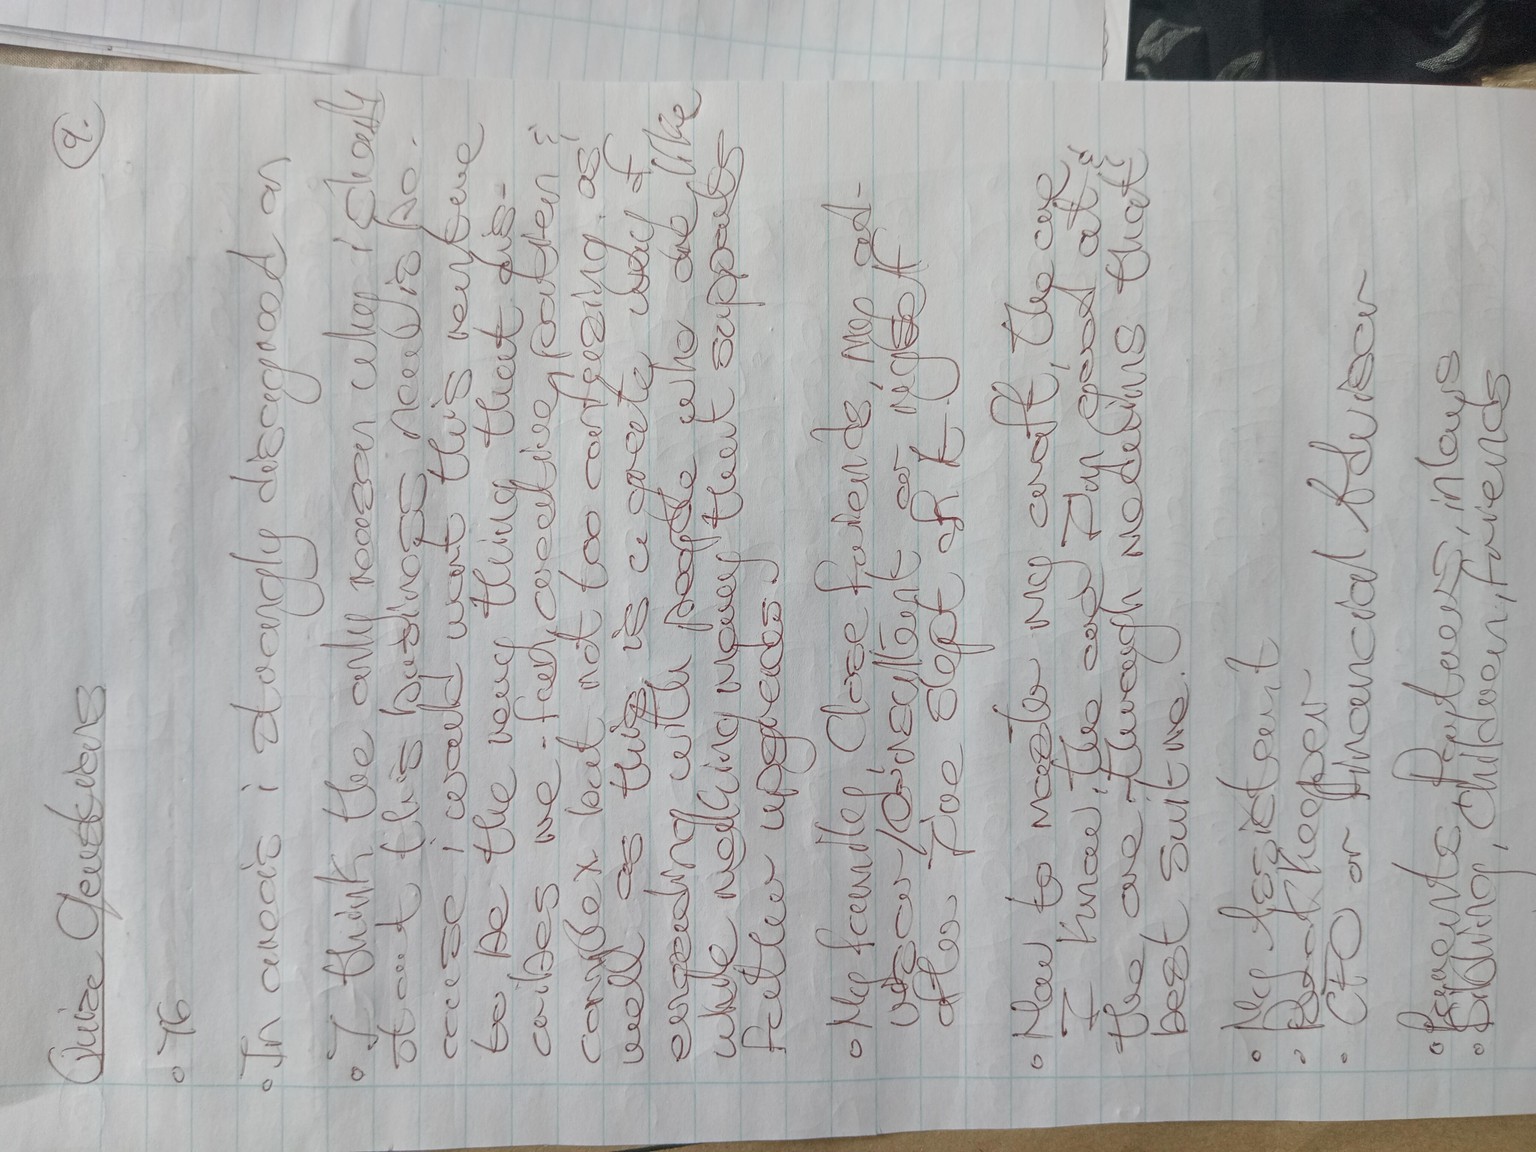 Quize Qeustions 9.
• 76
• In areas i strongly disagread on
• I think the only reason why i should
start this business, needs is be-
cause i would want this venture
to be the very thing that des-
cribes me - fun, creative, pattern &
complex but not too confusing. as
well as this, is a great way of
expanding with people who are like
while making money that supports
futher upgrades.
• My family, Close friends, my ad-
visor/Consultant or myself
after I've slept of it.
• How to master my craft, the one
I know, the one I'm good at &
the one through mediums that
best suit me.
• My Assistent
• Bookkeeper
• CFO or Financial Advisor
• Parents, Partners, inlaws
• Sibling, Children, friends